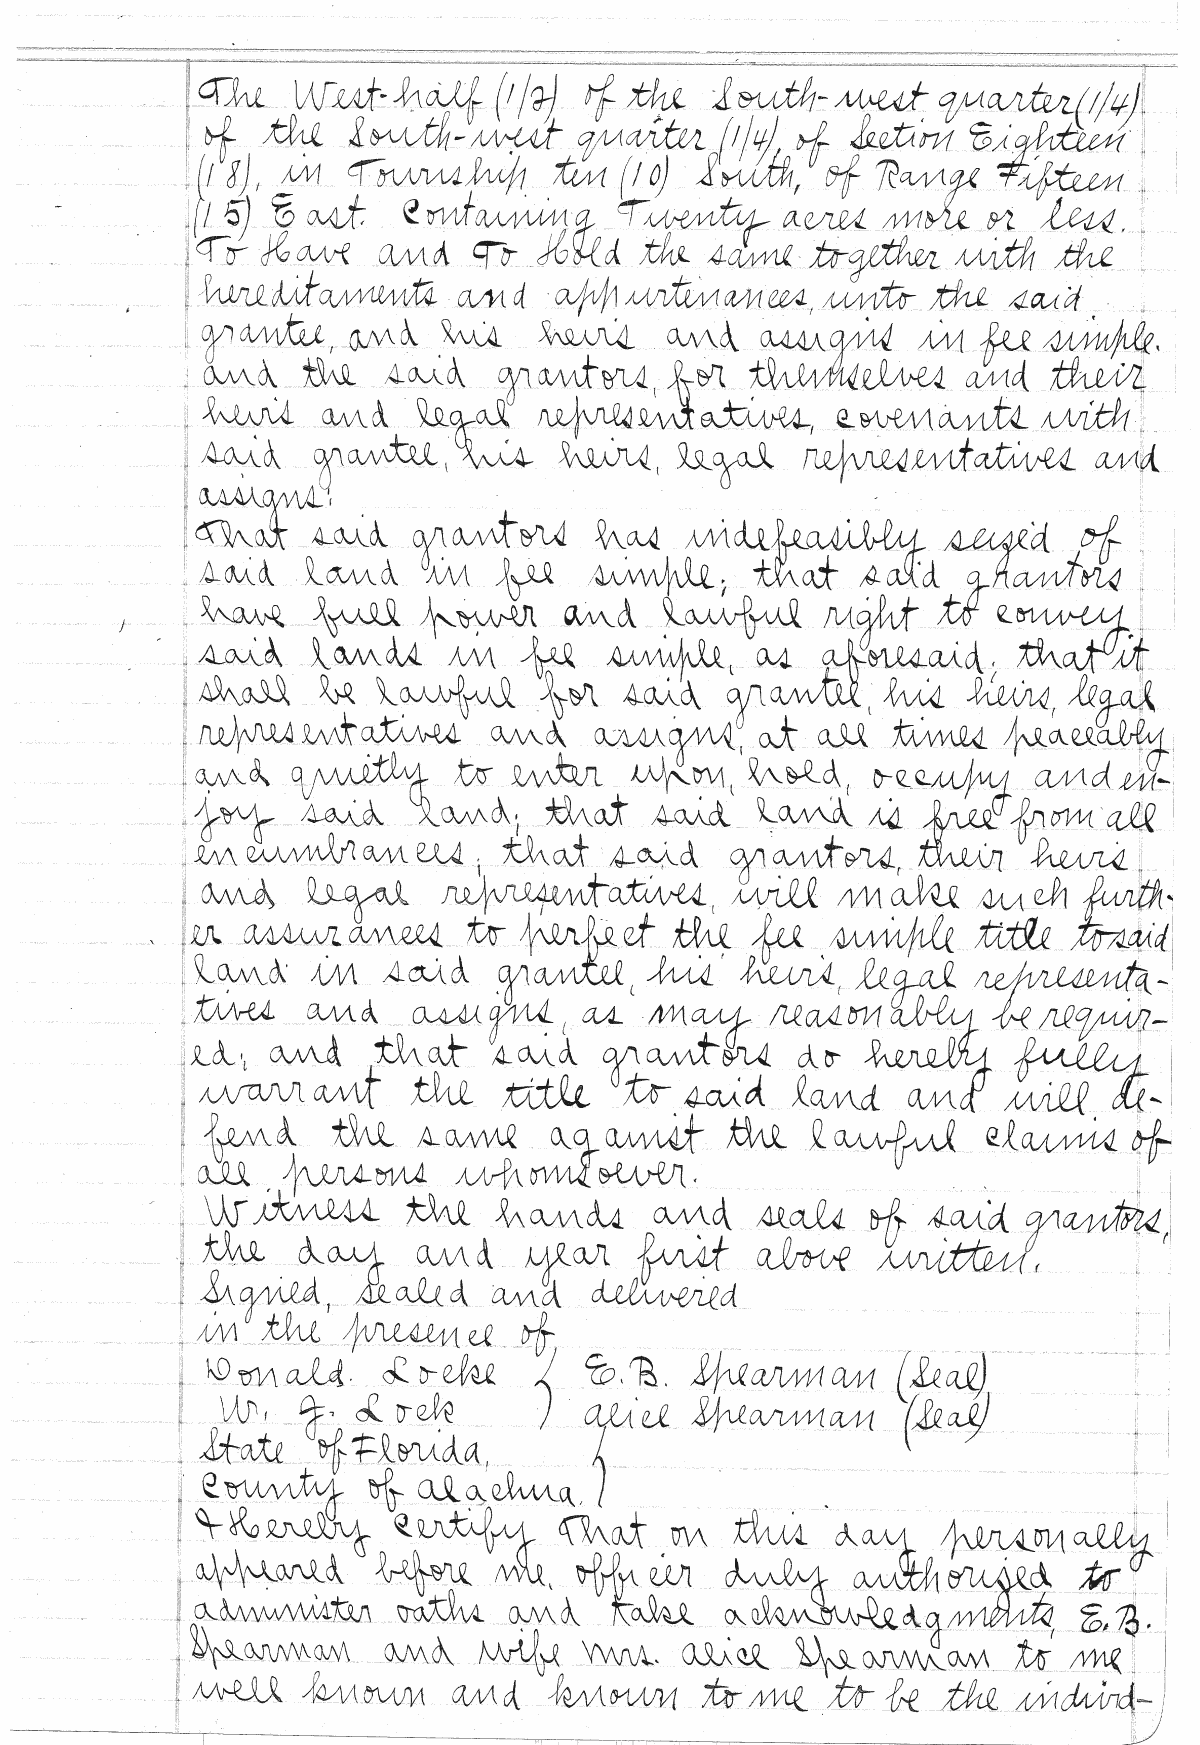 The West-half (1/2) of the South-west quarter (1/4)
of the South-west quarter (1/4), of Section Eighteen
(18), in Township ten (10) South, of Range Fifteen
(15) East. Containing Twenty acres more or less.
To Have and To Hold the same together with the
hereditaments and appurtenances, unto the said
grantee, and his heirs and assigns in fee simple.
and the said grantors, for themselves and their
heirs and legal representatives, covenants with
said grantee, his heirs, legal representatives and
assigns:
That said grantors has indefeasibly seized of
said land in fee simple; that said grantors
have full power and lawful right to convey
said lands in fee simple, as aforesaid; that it
shall be lawful for said grantee, his heirs, legal
representatives and assigns, at all times peaceably
and quietly to enter upon, hold, occupy and en-
joy said land; that said land is free from all
encumbrances; that said grantors, their heirs
and legal representatives, will make such furth-
er assurances to perfect the fee simple title to said
land in said grantee, his heirs, legal representa-
tives and assigns, as may reasonably be requir-
ed; and that said grantors do hereby fully
warrant the title to said land and will de-
fend the same against the lawful claims of
all persons whomsoever.
Witness the hands and seals of said grantors,
the day and year first above written.
Signed, sealed and delivered
in the presence of
Donald. Locke } E. B. Spearman (Seal)
W. J. Lock } Alice Spearman (Seal)
State of Florida,
County of Alachua. }
I Hereby Certify That on this day personally
appeared before me, officer duly authorized to
administer oaths and take acknowledgments, E. B.
Spearman and wife Mrs. Alice Spearman to me
well known and known to me to be the individ-